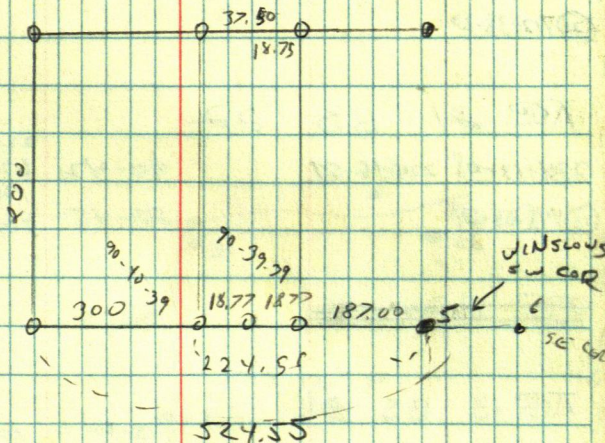 37.50
18.75
200
90-40-39
90-39-29
WINSLOWS
SW COR
300
18.77
18.77
187.00
5
6
SE COR
224.55
524.55